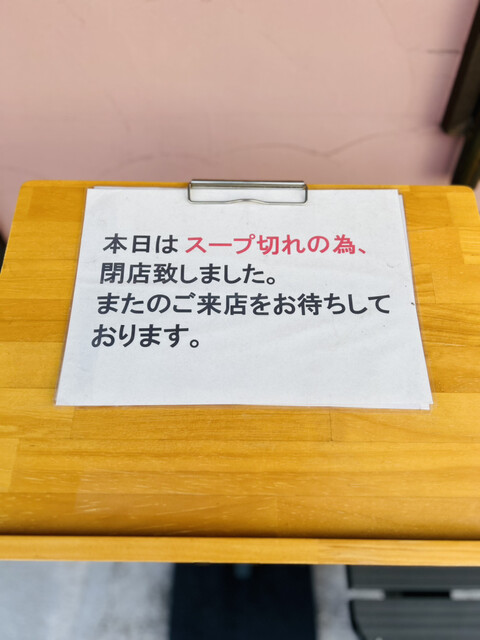 本日は スープ切れの為、
閉店致しました。
またのご来店をお待ちして
おります。